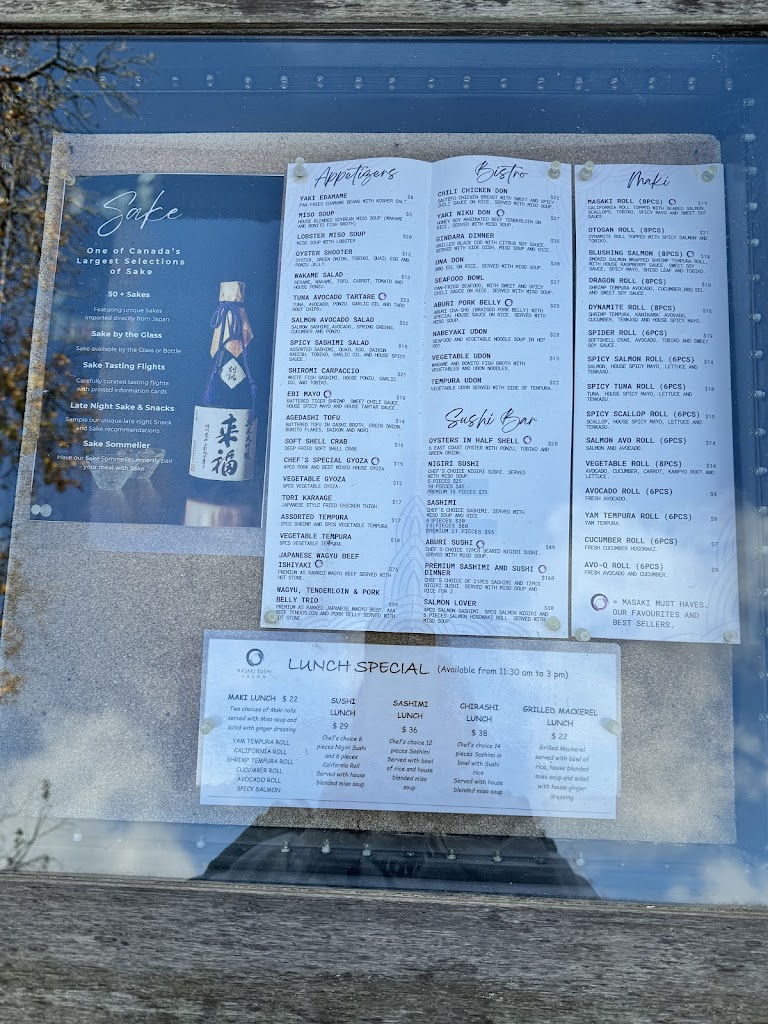 Sake
One of Canada's
Largest Selections
of Sake
50 + Sakes
Featuring unique Sakes
imported directly from Japan
Sake by the Glass
Sake available by the Glass or Bottle
Sake Tasting Flights
Carefully curated tasting flights
with printed information cards
Late Night Sake & Snacks
Sample our unique late night Snack
and Sake recommendations
Sake Sommelier
Have our Sake Sommelier expertly pair
your meal with Sake
別誂
来福
Appetizers
YAKI EDAMAME $8
PAN FRIED EDAMAME BEANS WITH KOSHER SALT
MISO SOUP $5
HOUSE BLENDED SOYBEAN MISO SOUP (WAKAME
AND BONITO FISH BROTH)
LOBSTER MISO SOUP $20
MISO SOUP WITH LOBSTER
OYSTER SHOOTER $12
OYSTER, GREEN ONION, TOBIKO, QUAIL EGG AND
PONZU JELLY
WAKAME SALAD $13
SESAME, WAKAME, TOFU, CARROT, TOMATO AND
HOUSE PONZU.
TUNA AVOCADO TARTARE $23
TUNA, AVOCADO, PONZU, GARLIC OIL AND TARO
ROOT CHIPS.
SALMON AVOCADO SALAD $22
SALMON SASHIMI, AVOCADO, SPRING GREENS,
CUCUMBER AND PONZU.
SPICY SASHIMI SALAD
ASSORTED SASHIMI, QUAIL EGG, DAIKON
RADISH, TOBIKO, GARLIC OIL AND HOUSE SPICY
SAUCE.
SHIROMI CARPACCIO $21
WHITE FISH SASHIMI, HOUSE PONZU, GARLIC
OIL AND TOBIKO.
EBI MAYO $19
BATTERED TIGER SHRIMP, SWEET CHILI SAUCE,
HOUSE SPICY MAYO AND HOUSE TARTAR SAUCE.
AGEDASHI TOFU $14
BATTERED TOFU IN DASHI BROTH, GREEN ONION,
BONITO FLAKES, DAIKON AND NORI.
SOFT SHELL CRAB $16
DEEP FRIED SOFT SHELL CRAB.
CHEF'S SPECIAL GYOZA $15
4PCS PORK AND BEEF MIXED HOUSE GYOZA
VEGETABLE GYOZA $12
5PCS VEGETABLE GYOZA.
TORI KARAAGE $17
JAPANESE STYLE FRIED CHICKEN THIGH.
ASSORTED TEMPURA $17
2PCS SHRIMP AND 5PCS VEGETABLE TEMPURA.
VEGETABLE TEMPURA
8PCS VEGETABLE TEMPURA.
JAPANESE WAGYU BEEF
ISHIYAKI $75
PREMIUM A5 RANKED WAGYU BEEF SERVED WITH
HOT STONE.
WAGYU, TENDERLOIN & PORK
BELLY TRIO $99
PREMIUM A5 RANKED JAPANESE WAGYU BEEF, AAA
BEEF TENDERLOIN AND PORK BELLY SERVED WITH
HOT STONE
Bistro
CHILI CHICKEN DON $25
SAUTEED CHICKEN BREAST WITH SWEET AND SPICY
CHILI SAUCE ON RICE. SERVED WITH MISO SOUP.
YAKI NIKU DON $27
HONEY SOY MARINATED BEEF TENDERLOIN ON
RICE. SERVED WITH MISO SOUP.
GINDARA DINNER $35
GRILLED BLACK COD WITH CITRUS SOY SAUCE.
SERVED WITH SIDE DISH, MISO SOUP AND RICE.
UNA DON $38
BBQ EEL ON RICE. SERVED WITH MISO SOUP.
SEAFOOD BOWL $27
PAN-FRIED SEAFOOD, WITH SWEET AND SPICY
CHILI SAUCE ON RICE. SERVED WITH MISO SOUP.
ABURI PORK BELLY $25
ABURI CHA-SHU (BRAISED PORK BELLY) WITH
SPECIAL HOUSE SAUCE ON RICE. SERVED WITH
MISO SOUP.
NABEYAKI UDON $28
SEAFOOD AND VEGETABLE NOODLE SOUP IN HOT
POT.
VEGETABLE UDON $15
WAKAME AND BONITO FISH BROTH WITH
VEGETABLES AND UDON NOODLES.
TEMPURA UDON $22
VEGETABLE UDON SERVED WITH SIDE OF TEMPURA.
Sushi Bar
OYSTERS IN HALF SHELL $28
6 EAST COAST OYSTER WITH PONZU, TOBIKO AND
GREEN ONION.
NIGIRI SUSHI
CHEF'S CHOICE NIGIRI SUSHI. SERVED
WITH MISO SOUP.
5 PIECES $25
10 PIECES $45
PREMIUM 15 PIECES $73
SASHIMI
CHEF'S CHOICE SASHIMI, SERVED WITH
MISO SOUP AND RICE
6 PIECES $30
15 PIECES $60
PREMIUM 21 PIECES $95
ABURI SUSHI $49
CHEF'S CHOICE 12PCS SEARED NIGIRI SUSHI.
SERVED WITH MISO SOUP
PREMIUM SASHIMI AND SUSHI
DINNER $168
CHEF'S CHOICE OF 21PCS SASHIMI AND 12PCS
NIGIRI SUSHI. SERVED WITH MISO SOUP AND
RICE FOR 2.
SALMON LOVER $38
4PCS SALMON SASHIMI, 5PCS SALMON NIGIRI AND
5 PIECES SALMON HOSOMAKI ROLL. SERVED WITH
MISO SOUP
Maki
MASAKI ROLL (8PCS) $19
CALIFORNIA ROLL TOPPED WITH SEARED SALMON,
SCALLOPS, TOBIKO, SPICY MAYO AND SWEET SOY
SAUCE.
OTOSAN ROLL (8PCS) $21
DYNAMITE ROLL TOPPED WITH SPICY SALMON AND
TOBIKO.
BLUSHING SALMON (8PCS) $18
SMOKED SALMON WRAPPED SHRIMP TEMPURA ROLL,
WITH HOUSE RASPBERRY SAUCE, SWEET SOY
SAUCE, SPICY MAYO, SHISO LEAF AND TOBIKO.
DRAGON ROLL (8PCS) $18
SHRIMP TEMPURA AVOCADO, CUCUMBER, BBQ EEL
AND SWEET SOY SAUCE.
DYNAMITE ROLL (8PCS) $16
SHRIMP TEMPURA, KANIKAMA, AVOCADO,
CUCUMBER, TENKASU AND HOUSE SPICY MAYO.
SPIDER ROLL (6PCS) $19
SOFTSHELL CRAB, AVOCADO, TOBIKO AND SWEET
SOY SAUCE.
SPICY SALMON ROLL (6PCS) $14
SALMON, HOUSE SPICY MAYO, LETTUCE AND
TENKASU.
SPICY TUNA ROLL (6PCS) $16
TUNA, HOUSE SPICY MAYO, LETTUCE AND
TENKASU.
SPICY SCALLOP ROLL (6PCS) $15
SCALLOP, HOUSE SPICY MAYO, LETTUCE AND
TENKASU.
SALMON AVO ROLL (6PCS) $14
SALMON AND AVOCADO.
VEGETABLE ROLL (8PCS) $14
AVOCADO, CUCUMBER, CARROT, KANPYO ROOT AND
LETTUCE.
AVOCADO ROLL (6PCS) $9
FRESH AVOCADO.
YAM TEMPURA ROLL (6PCS) $9
YAM TEMPURA.
CUCUMBER ROLL (6PCS) $7
FRESH CUCUMBER HOSOMAKI.
AVO-Q ROLL (6PCS) $9
FRESH AVOCADO AND CUCUMBER.
= MASAKI MUST HAVES.
OUR FAVOURITES AND
BEST SELLERS.
MASAKI SUSHI
LUNCH SPECIAL (Available from 11:30 am to 3 pm)
MAKI LUNCH $ 22
Two choices of Maki rolls
served with Miso soup and
salad with ginger dressing
YAM TEMPURA ROLL
CALIFORNIA ROLL
SHRIMP TEMPURA ROLL
CUCUMBER ROLL
AVOCADO ROLL
SPICY SALMON
SUSHI
LUNCH
$ 29
Chef's choice 6
pieces Nigiri Sushi
and 6 pieces
California Roll
Served with house
blended miso soup
SASHIMI
LUNCH
$ 36
Chef's choice 12
pieces Sashimi
Served with bowl
of rice and house
blended miso
soup
CHIRASHI
LUNCH
$ 38
Chef's choice 14
pieces Sashimi in
bowl with Sushi
rice
Served with house
blended miso soup
GRILLED MACKEREL
LUNCH
$ 22
Grilled Mackerel
served with bowl of
rice, house blended
miso soup and salad
with house ginger
dressing